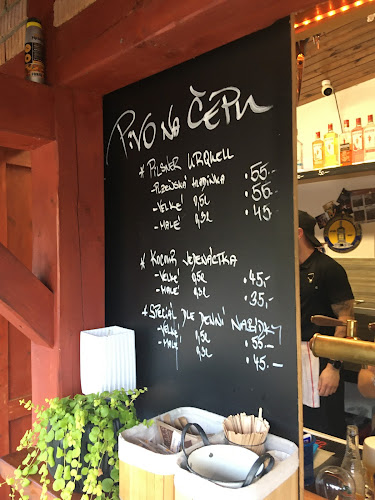 PIVO NA ČEPU
* PILSNER URQUELL
- PLZEŇSKÁ HLADINKA .55.-
- VELKÉ 0,5L .55.-
- MALÉ 0,3L .45
* KOZEL JEDENÁCTKA
- VELKÉ 0,5L .45.-
- MALÉ 0,3L .35.-
* SPECIÁL DLE DENNÍ NABÍDKY
- VELKÉ 0,5L .55.-
- MALÉ 0,3L .45.-